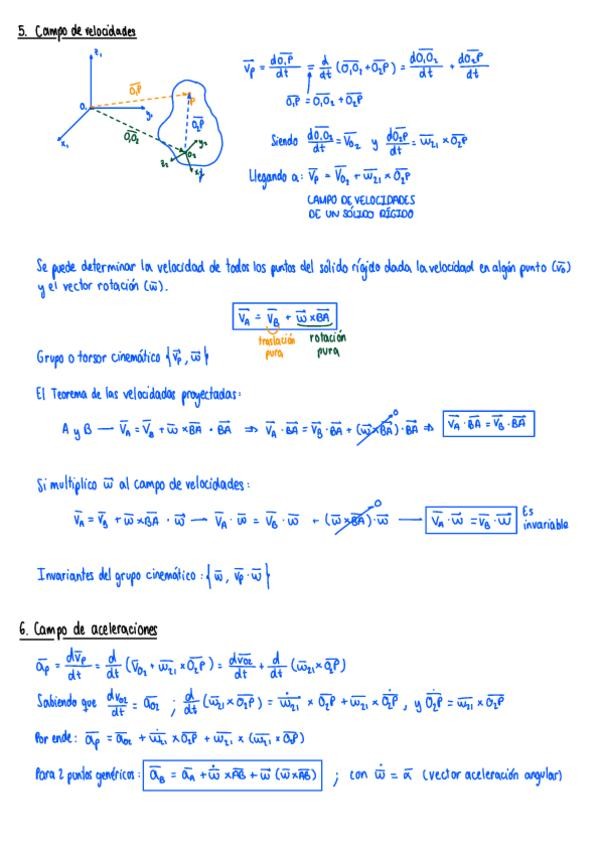 5. Campo de velocidades
z₁
O₁P
P
O₁
y₁
O₂P
O₁O₂
y₂
z₂
O₂
x₁
v̄ₚ = dO₁P/dt = d/dt (O₁O₂ + O₂P) = dO₁O₂/dt + dO₂P/dt
O₁P = O₁O₂ + O₂P
Siendo dO₁O₂/dt = v̄O₂ y dO₂P/dt = w̄₂₁ × O₂P
Llegando a: v̄ₚ = v̄O₂ + w̄₂₁ × O₂P
CAMPO DE VELOCIDADES
DE UN SÓLIDO RÍGIDO
Se puede determinar la velocidad de todos los puntos del sólido rígido dada la velocidad en algún punto (v̄₀)
y el vector rotación (w̄).
v̄A = v̄B + w̄ × BA
traslación pura
rotación pura
Grupo o torsor cinemático {v̄ₚ, w̄}
El Teorema de las velocidades proyectadas:
A y B — v̄A = v̄B + w̄ × BA · BA ⇒ v̄A · BA = v̄B · BA + (w̄ × BA) · BA 0 ⇒ v̄A · BA = v̄B · BA
Si multiplico w̄ al campo de velocidades:
v̄A = v̄B + w̄ × BA · w̄ — v̄A · w̄ = v̄B · w̄ + (w̄ × BA) · w̄ 0 — v̄A · w̄ = v̄B · w̄ Es invariable
Invariantes del grupo cinemático: {w̄, v̄ₚ · w̄}
6. Campo de aceleraciones
āₚ = dv̄ₚ/dt = d/dt (v̄O₂ + w̄₂₁ × O₂P) = dv̄O₂/dt + d/dt (w̄₂₁ × O₂P)
Sabiendo que dvO₂/dt = āO₂ ; d/dt (w̄₂₁ × O₂P) = ẇ₂₁ × O₂P + w̄₂₁ × Ȯ₂P, y Ȯ₂P = w̄₂₁ × O₂P
Por ende: āₚ = āO₂ + ẇ₂₁ × O₂P + w̄₂₁ × (w̄₂₁ × O₂P)
Para 2 puntos genéricos: āB = āA + ẇ × AB + w̄ (w̄ × AB) ; con ẇ = ᾱ (vector aceleración angular)